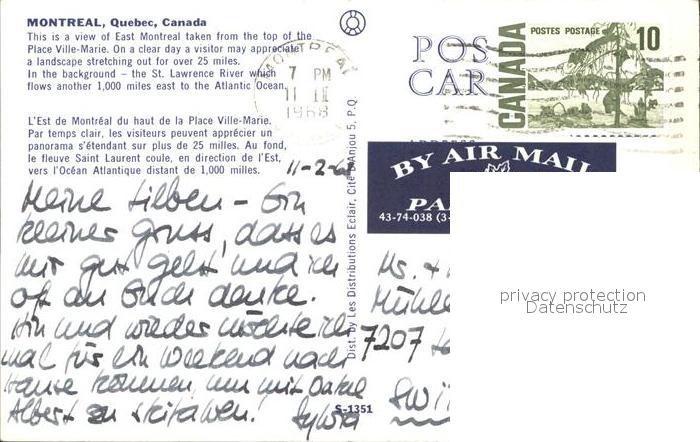 MONTREAL, Quebec, Canada
This is a view of East Montreal taken from the top of the
Place Ville-Marie. On a clear day a visitor may appreciate
a landscape stretching out for over 25 miles.
In the background – the St. Lawrence River which
flows another 1,000 miles east to the Atlantic Ocean.
L'Est de Montréal du haut de la Place Ville-Marie.
Par temps clair, les visiteurs peuvent apprécier un
panorama s'étendant sur plus de 25 milles. Au fond,
le fleuve Saint Laurent coule, en direction de l'Est,
vers l'Océan Atlantique distant de 1,000 milles.
MONTREAL
7 PM
11 II
1968
POS
CAR
ADDRESS
CANADA
POSTES POSTAGE
10
BY AIR MAIL
PA
43-74-038 (3-
Dist. by Les Distributions Eclair, Cité d'Anjou 5, P.Q.
S-1351
11-2-68
Meine Lieben – Ein
kleiner Gruss, dass es
mir gut geht und ich
oft an Euch denke.
Hin und wieder möchte ich
mal für ein Weekend nach
Hause kommen, um mit Onkel
Albert zu skifahren!
Sylvia
Ms. +
Mühle
7207
SWI
privacy protection
Datenschutz